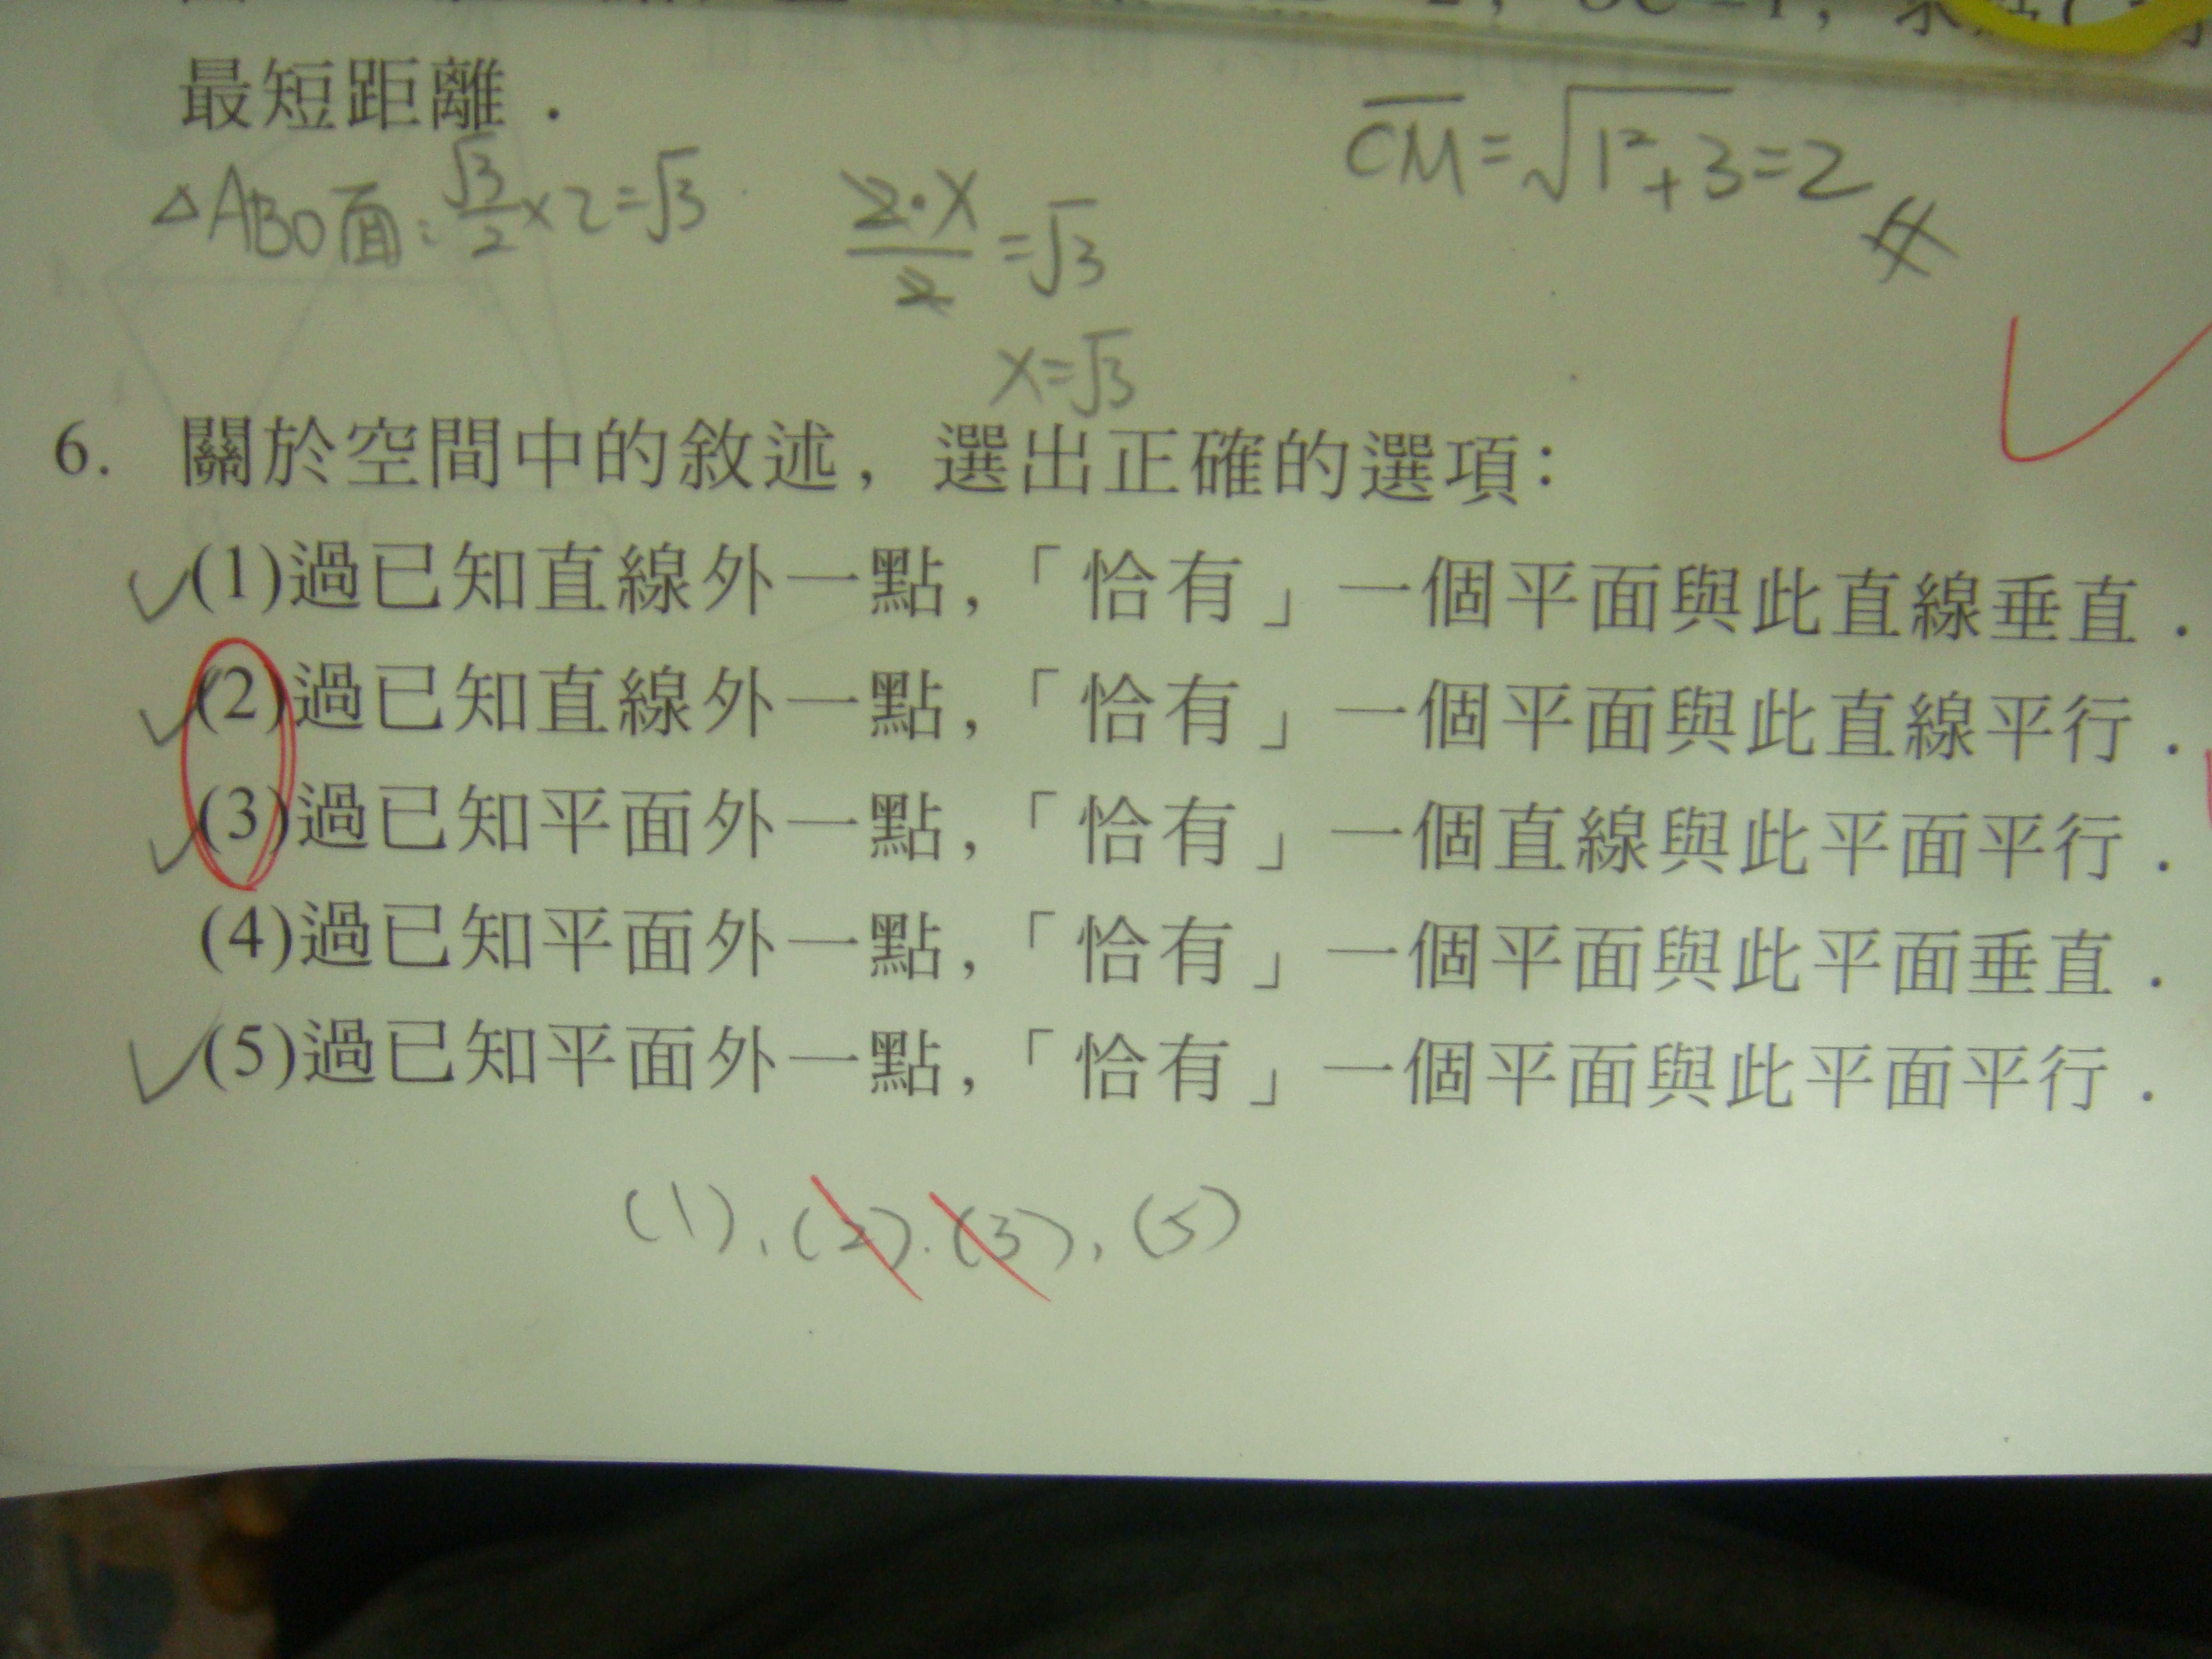 最短距離．
△ABO面：√3/2×2=√3
2·X/2=√3
X=√3
CM=√1²+3=2
6. 關於空間中的敘述，選出正確的選項：
(1)過已知直線外一點，「恰有」一個平面與此直線垂直．
(2)過已知直線外一點，「恰有」一個平面與此直線平行．
(3)過已知平面外一點，「恰有」一個直線與此平面平行．
(4)過已知平面外一點，「恰有」一個平面與此平面垂直．
(5)過已知平面外一點，「恰有」一個平面與此平面平行．
(1)、(2)、(3)、(5)